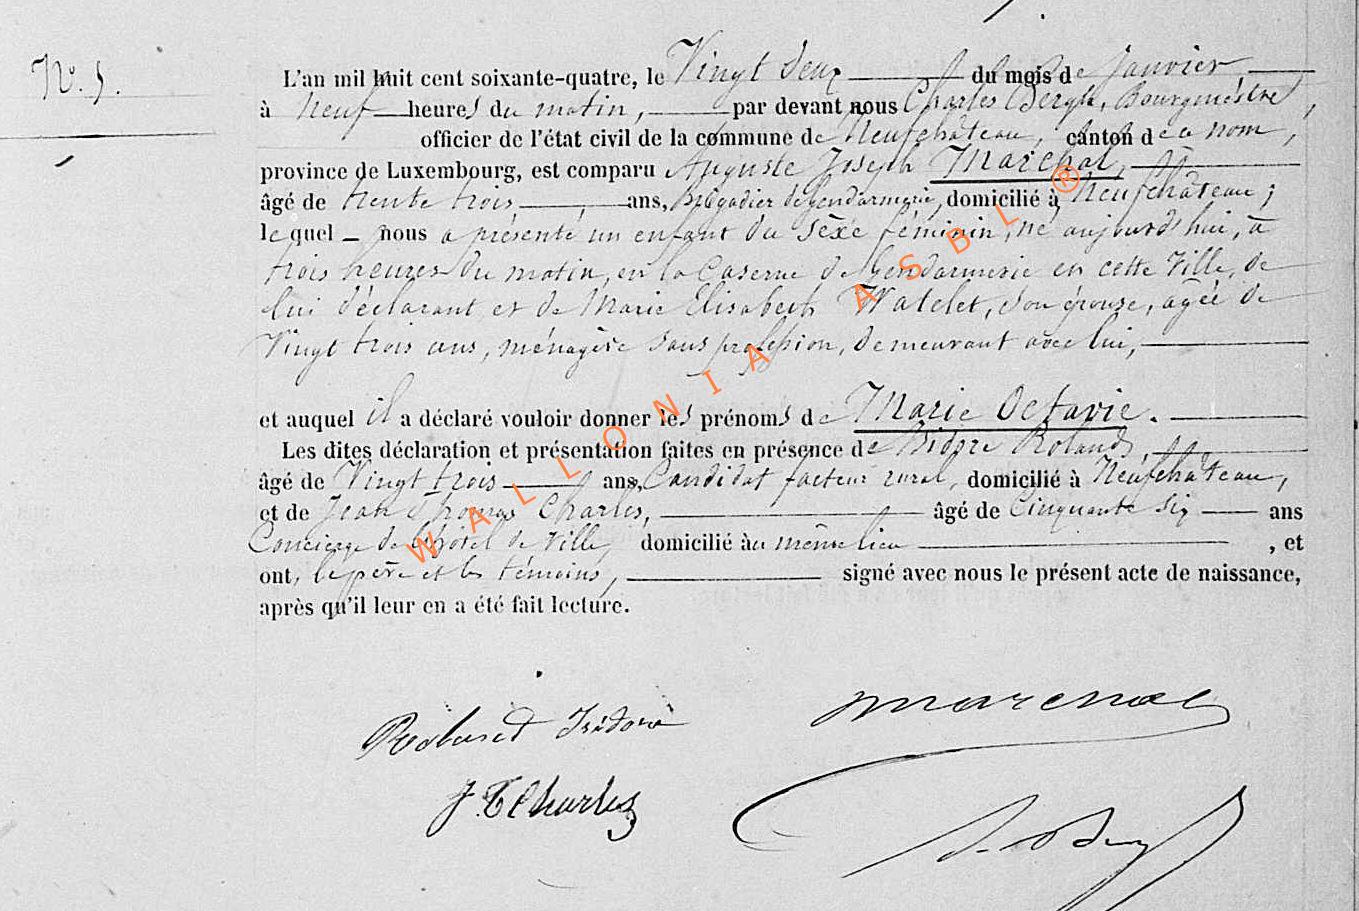 N°. 5.
L'an mil huit cent soixante-quatre, le Vingt deux du mois de janvier,
à Neuf heures du matin, par devant nous Charles Bergh, Bourgmestre,
officier de l'état civil de la commune de Neufchâteau, canton de ce nom,
province de Luxembourg, est comparu Auguste Joseph Marechal,
âgé de trente trois ans, Brigadier de gendarmerie, domicilié à Neufchâteau ;
lequel nous a présenté un enfant du sexe féminin, né aujourd'hui, à
trois heures du matin, en la Caserne de gendarmerie en cette Ville, de
lui déclarant et de Marie Elisabeth Watelet, son épouse, agée de
Vingt trois ans, ménagère sans profession, demeurant avec lui,
et auquel il a déclaré vouloir donner les prénoms de Marie Octavie.
Les dites déclaration et présentation faites en présence de Isidore Roland,
âgé de Vingt trois ans, Candidat facteur rural, domicilié à Neufchâteau,
et de Jean Thomas Charles, âgé de Cinquante six ans
Concierge de l'hôtel de Ville, domicilié au même lieu , et
ont, le père et les témoins, signé avec nous le présent acte de naissance,
après qu'il leur en a été fait lecture.
WALLONIA ASBL ®
Roland Isidore
marechal
J. T Charles